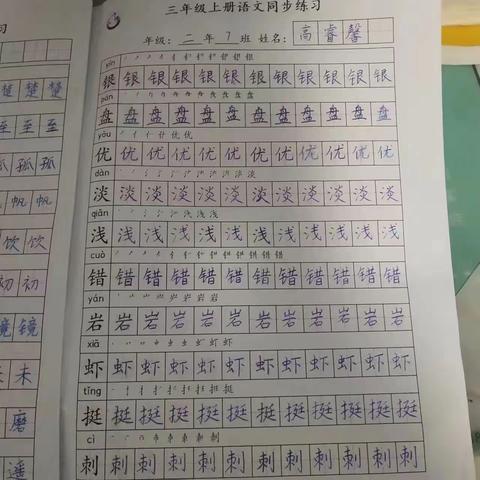 三年级上册语文同步练习
年级:二年7班 姓名:高睿馨
yín
银银银银银银银银银银银银
pán
盘盘盘盘盘盘盘盘盘盘盘盘
yōu
优优优优优优优优优优优优
dàn
淡淡淡淡淡淡淡淡淡淡淡淡
qiǎn
浅浅浅浅浅浅浅浅浅浅浅浅
cuò
错错错错错错错错错错错错
yán
岩岩岩岩岩岩岩岩岩岩岩岩
xiā
虾虾虾虾虾虾虾虾虾虾虾虾
tǐng
挺挺挺挺挺挺挺挺挺挺挺挺
cì
刺刺刺刺刺刺刺刺刺刺刺刺
习
楚楚楚
至至至
孤孤
帆帆
饮饮
初初
镜镜
未
磨
遥